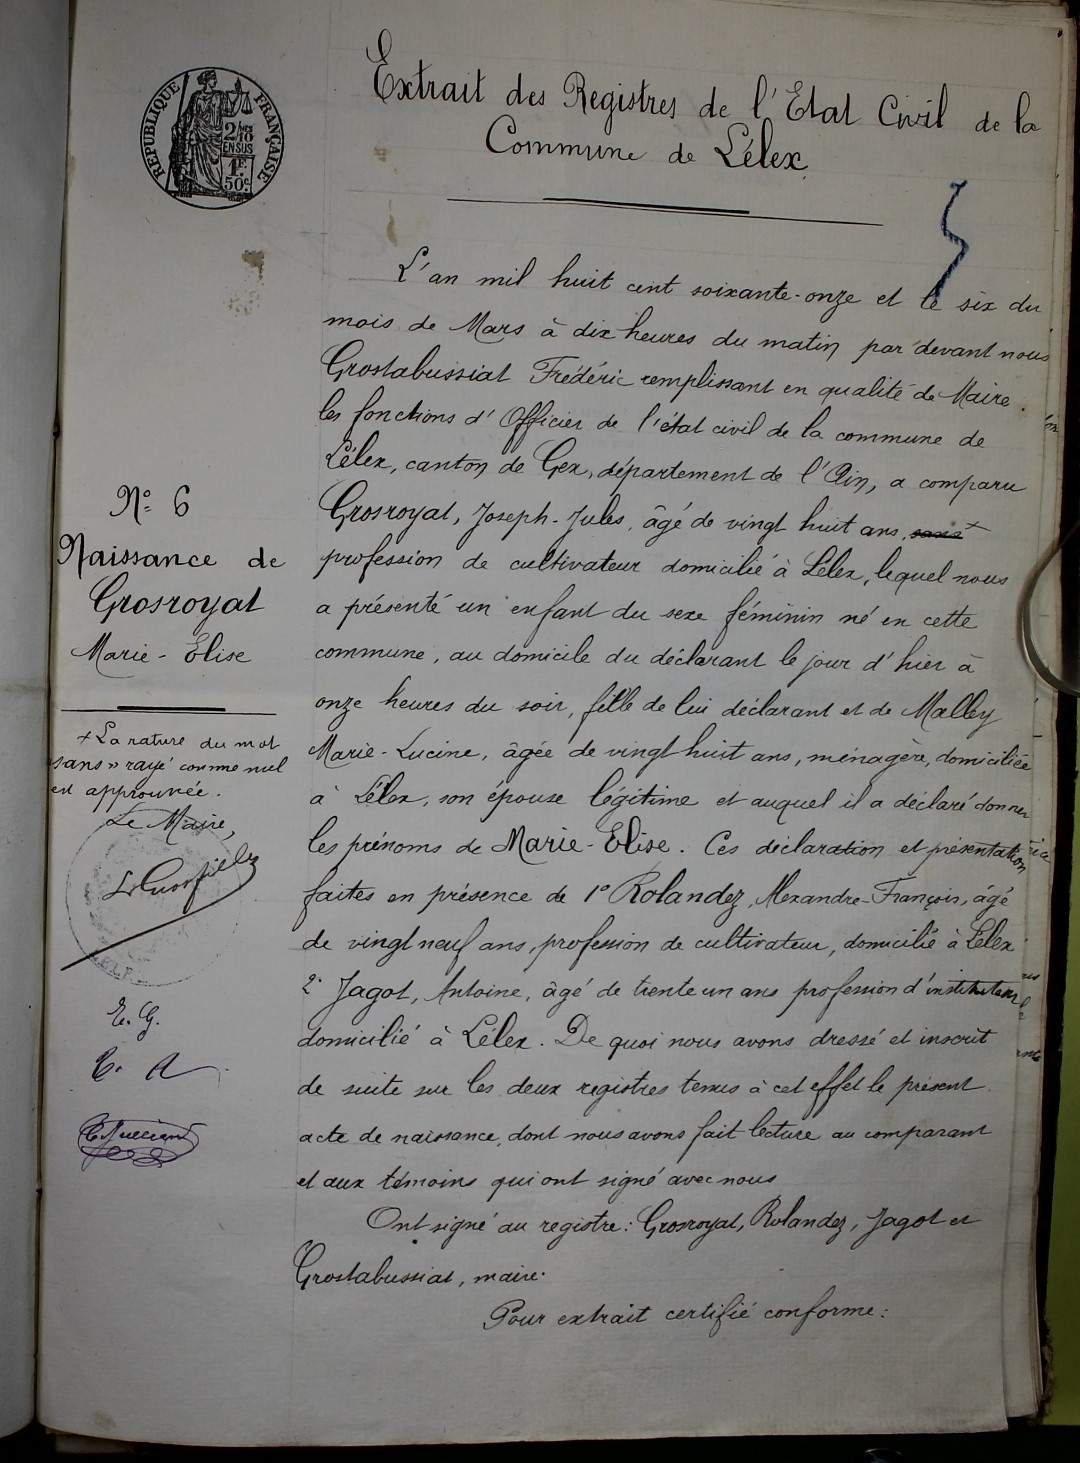 Extrait des Registres de l'Etat Civil de la
Commune de Lélex
RÉPUBLIQUE FRANÇAISE
2/10
EN SUS
1F.
50c
L'an mil huit cent soixante-onze et le six du
mois de Mars à dix heures du matin par devant nous
Grostabussiat Frédéric remplissant en qualité de Maire
les fonctions d'Officier de l'état civil de la commune de
Lélex, canton de Gex, département de l'Ain, a comparu
Grosroyat, Joseph-Jules, âgé de vingt huit ans, sans +
profession de cultivateur domicilié à Lélex, lequel nous
a présenté un enfant du sexe féminin né en cette
commune, au domicile du déclarant le jour d'hier à
onze heures du soir, fille de lui déclarant et de Malley
Marie-Lucine, âgée de vingt huit ans, ménagère, domiciliée
à Lélex, son épouse légitime et auquel il a déclaré donner
les prénoms de Marie-Elise. Ces déclaration et présentation
faites en présence de 1° Rolandez, Alexandre-François, âgé
de vingt neuf ans, profession de cultivateur, domicilié à Lélex
2° Jagot, Antoine, âgé de trente un ans profession d'instituteur
domicilié à Lélex. De quoi nous avons dressé et inscrit
de suite sur les deux registres tenus à cet effet le présent
acte de naissance, dont nous avons fait lecture au comparant
et aux témoins qui ont signé avec nous
Ont signé au registre: Grosroyat, Rolandez, Jagot et
Grostabussiat, maire.
Pour extrait certifié conforme:
N° 6
Naissance de
Grosroyat
Marie-Elise
+ La rature du mot
"sans" rayé comme nul
est approuvée.
Le Maire,
E. G.